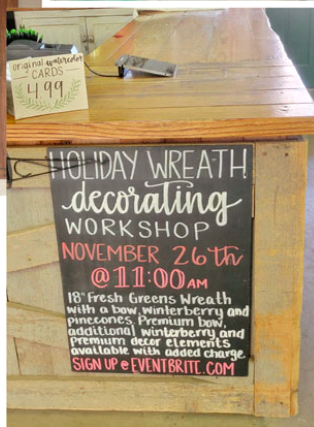 original watercolor
CARDS
4.99
HOLIDAY WREATH
decorating
WORKSHOP
NOVEMBER 26th
@ 11:00 AM
18" Fresh Greens Wreath
with a bow, winterberry and
pinecones. Premium bow,
additional winterberry and
premium decor elements
available with added charge.
SIGN UP @ EVENTBRITE.COM